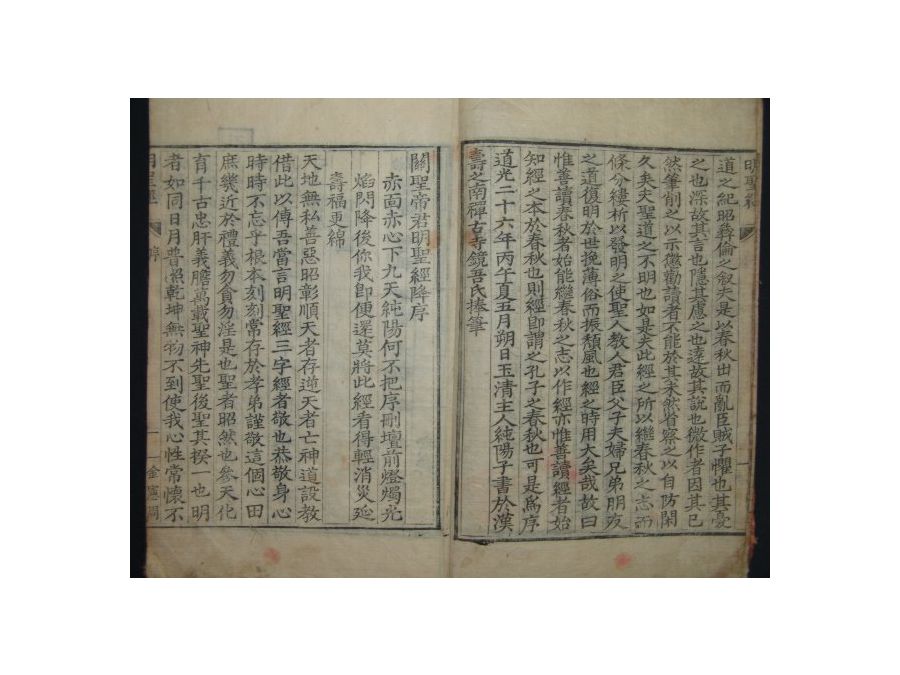 明聖經
道之紀昭彛倫之叙矣是以春秋出而亂臣賊子懼也其憂
之也深故其言也隱其慮之也遠故其說也微作者因其已
然筆削之以示懲勸讀者不能於其未然省察之以自防閑
久矣夫聖道之不明也如是夫此經之所以繼春秋之志而
條分縷析以發明之使聖人敎人君臣父子夫婦兄弟朋友
之道復明於世挽薄俗而振頹風也經之時用大矣哉故曰
惟善讀春秋者始能繼春秋之志以作經亦惟善讀經者始
知經之本於春秋也則經即謂之孔子之春秋也可是爲序
道光二十六年丙午夏五月朔日玉清主人純陽子書於漢
壽之南禪古寺鏡吾氏捧筆
關聖帝君明聖經降序
赤面赤心下九天純陽何不把序刪壇前燈燭光
焰閃降後你我即便還莫將此經看得輕消災延
壽福更綿
天地無私善惡昭彰順天者存逆天者亡神道設教
借此以傳吾當言明聖經三字經者敬也恭敬身心
時時不忘乎根本刻刻常存於孝弟謹敬這個心田
庶幾近於禮義勿貪勿淫是也聖者昭然也參天化
育千古忠肝義膽萬載聖神先聖後聖其揆一也明
者如同日月普照乾坤無物不到使我心性常懷不
序
一